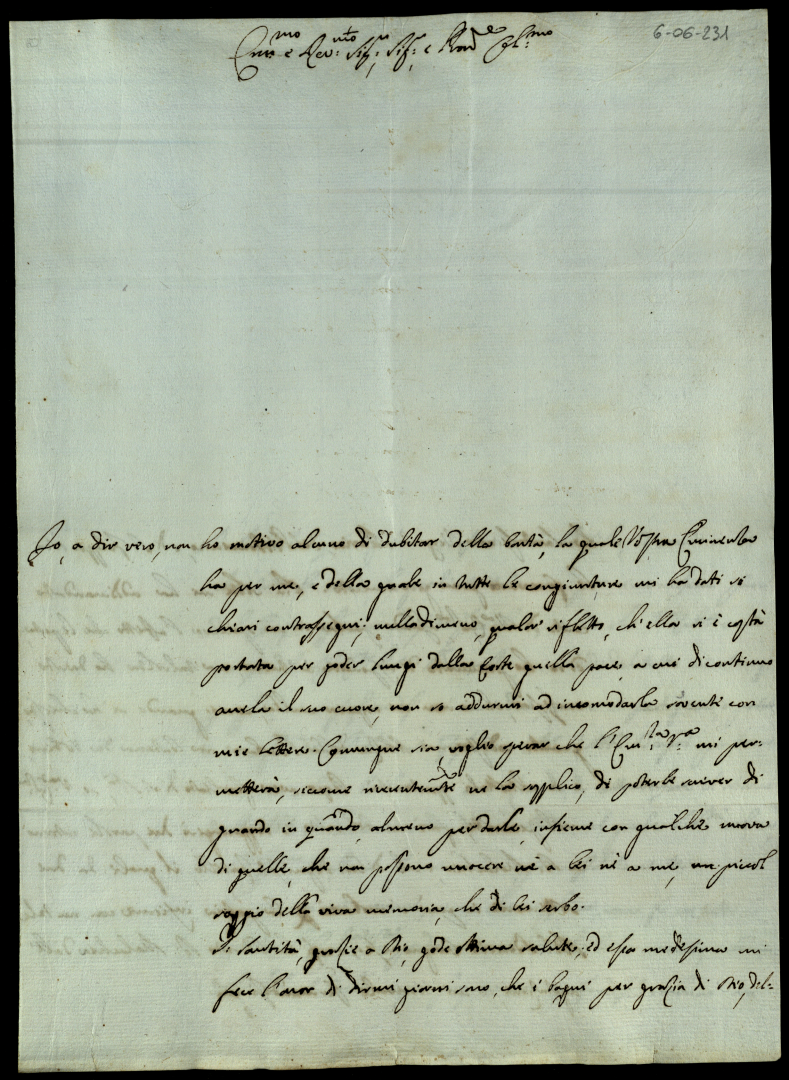 6-06-231
Em.mo e Rev.mo Sig.r Sig.r e Pron.e Col.mo
Io, a dir vero, non ho motivo alcuno di dubitar della bontà, la quale Vostra Eminenza
ha per me, e della quale in tutte le congiunture mi ha dati sì
chiari contrassegni; nulladimeno, qualor rifletto, ch'ella si è costà
portata per goder lungi dalla Corte quella pace, a cui di continuo
anela il suo cuore, non so addurmi ad incomodarla sovente con
mie lettere. Comunque sia, voglio sperar che l'Em.za V.a mi per=
metterà, siccome riverentem.te ne la supplico, di poterle scriver di
quando in quando, almeno per darle, insieme con qualche nuova
di quelle, che non possono nuocere nè a lei nè a me, un piccol
saggio della viva memoria, che di lei serbo.
S. Santità, grazie a Dio, gode ottima salute; ed essa medesima mi
fece l'onor di dirmi giorni sono, che i bagni per grazia di Dio, del=